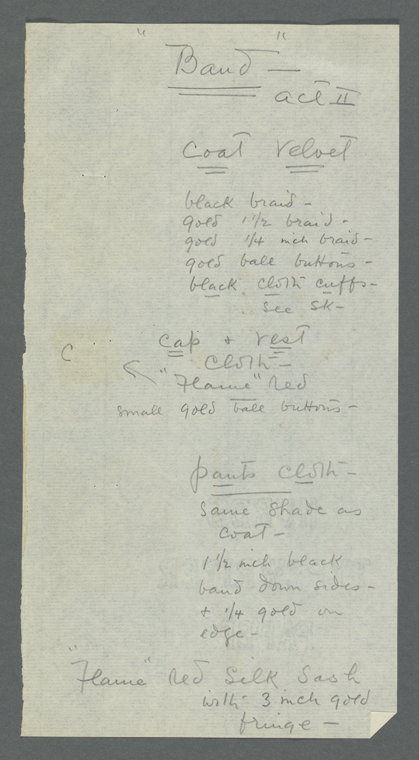 "Band" —
act II
Coat Velvet
black braid -
gold 1 1/2 braid -
gold 1/4 inch braid -
gold ball buttons -
black cloth cuffs -
See Sk -
Cap + Vest
C
Cloth -
"Flame" Red
small gold ball buttons -
pants cloth -
Same Shade as
coat -
1 1/2 inch black
band down sides -
+ 1/4 gold on
edge -
"Flame" Red Silk Sash
with 3 inch gold
fringe -